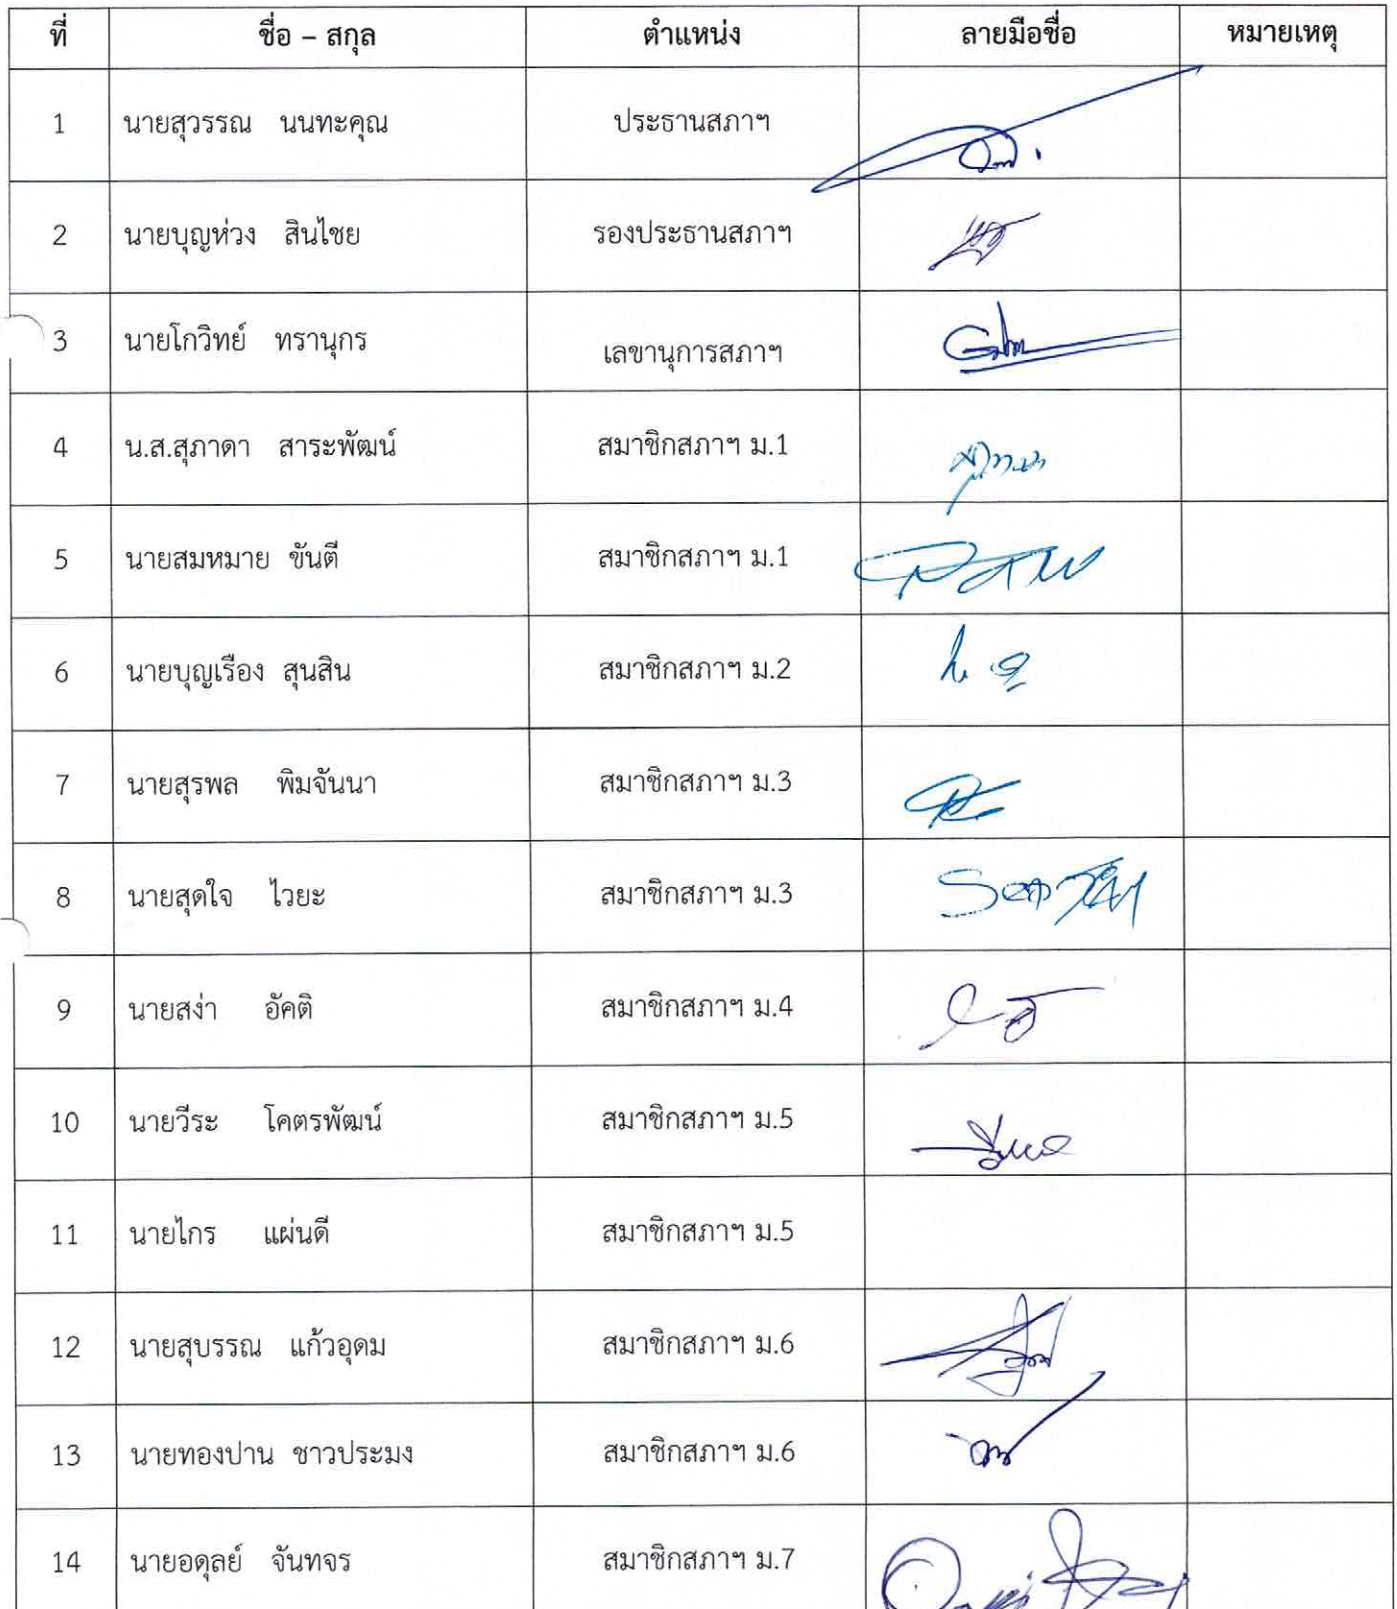 ที่ ชื่อ – สกุล ตำแหน่ง ลายมือชื่อ หมายเหตุ
1 นายสุวรรณ นนทะคุณ ประธานสภาฯ
2 นายบุญห่วง สินไชย รองประธานสภาฯ
3 นายโกวิทย์ ทรานุกร เลขานุการสภาฯ
4 น.ส.สุภาดา สาระพัฒน์ สมาชิกสภาฯ ม.1
5 นายสมหมาย ขันตี สมาชิกสภาฯ ม.1
6 นายบุญเรือง สุนสิน สมาชิกสภาฯ ม.2
7 นายสุรพล พิมจันนา สมาชิกสภาฯ ม.3
8 นายสุดใจ ไวยะ สมาชิกสภาฯ ม.3
9 นายสง่า อัคติ สมาชิกสภาฯ ม.4
10 นายวีระ โคตรพัฒน์ สมาชิกสภาฯ ม.5
11 นายไกร แผ่นดี สมาชิกสภาฯ ม.5
12 นายสุบรรณ แก้วอุดม สมาชิกสภาฯ ม.6
13 นายทองปาน ชาวประมง สมาชิกสภาฯ ม.6
14 นายอดุลย์ จันทจร สมาชิกสภาฯ ม.7